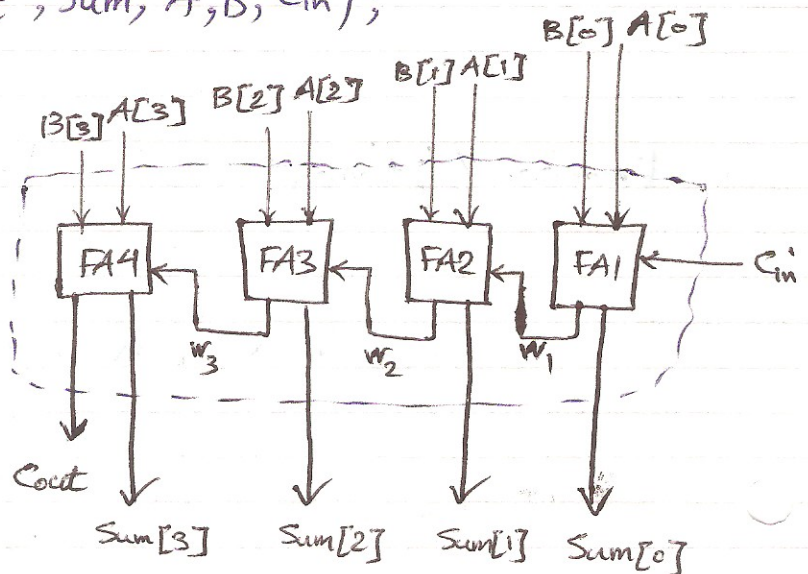 , Sum, A, B, Cin),
B[0] A[0]
B[1] A[1]
B[2] A[2]
B[3] A[3]
FA4 FA3 FA2 FA1 Cin
w3 w2 w1
Cout
Sum[3] Sum[2] Sum[1] Sum[0]